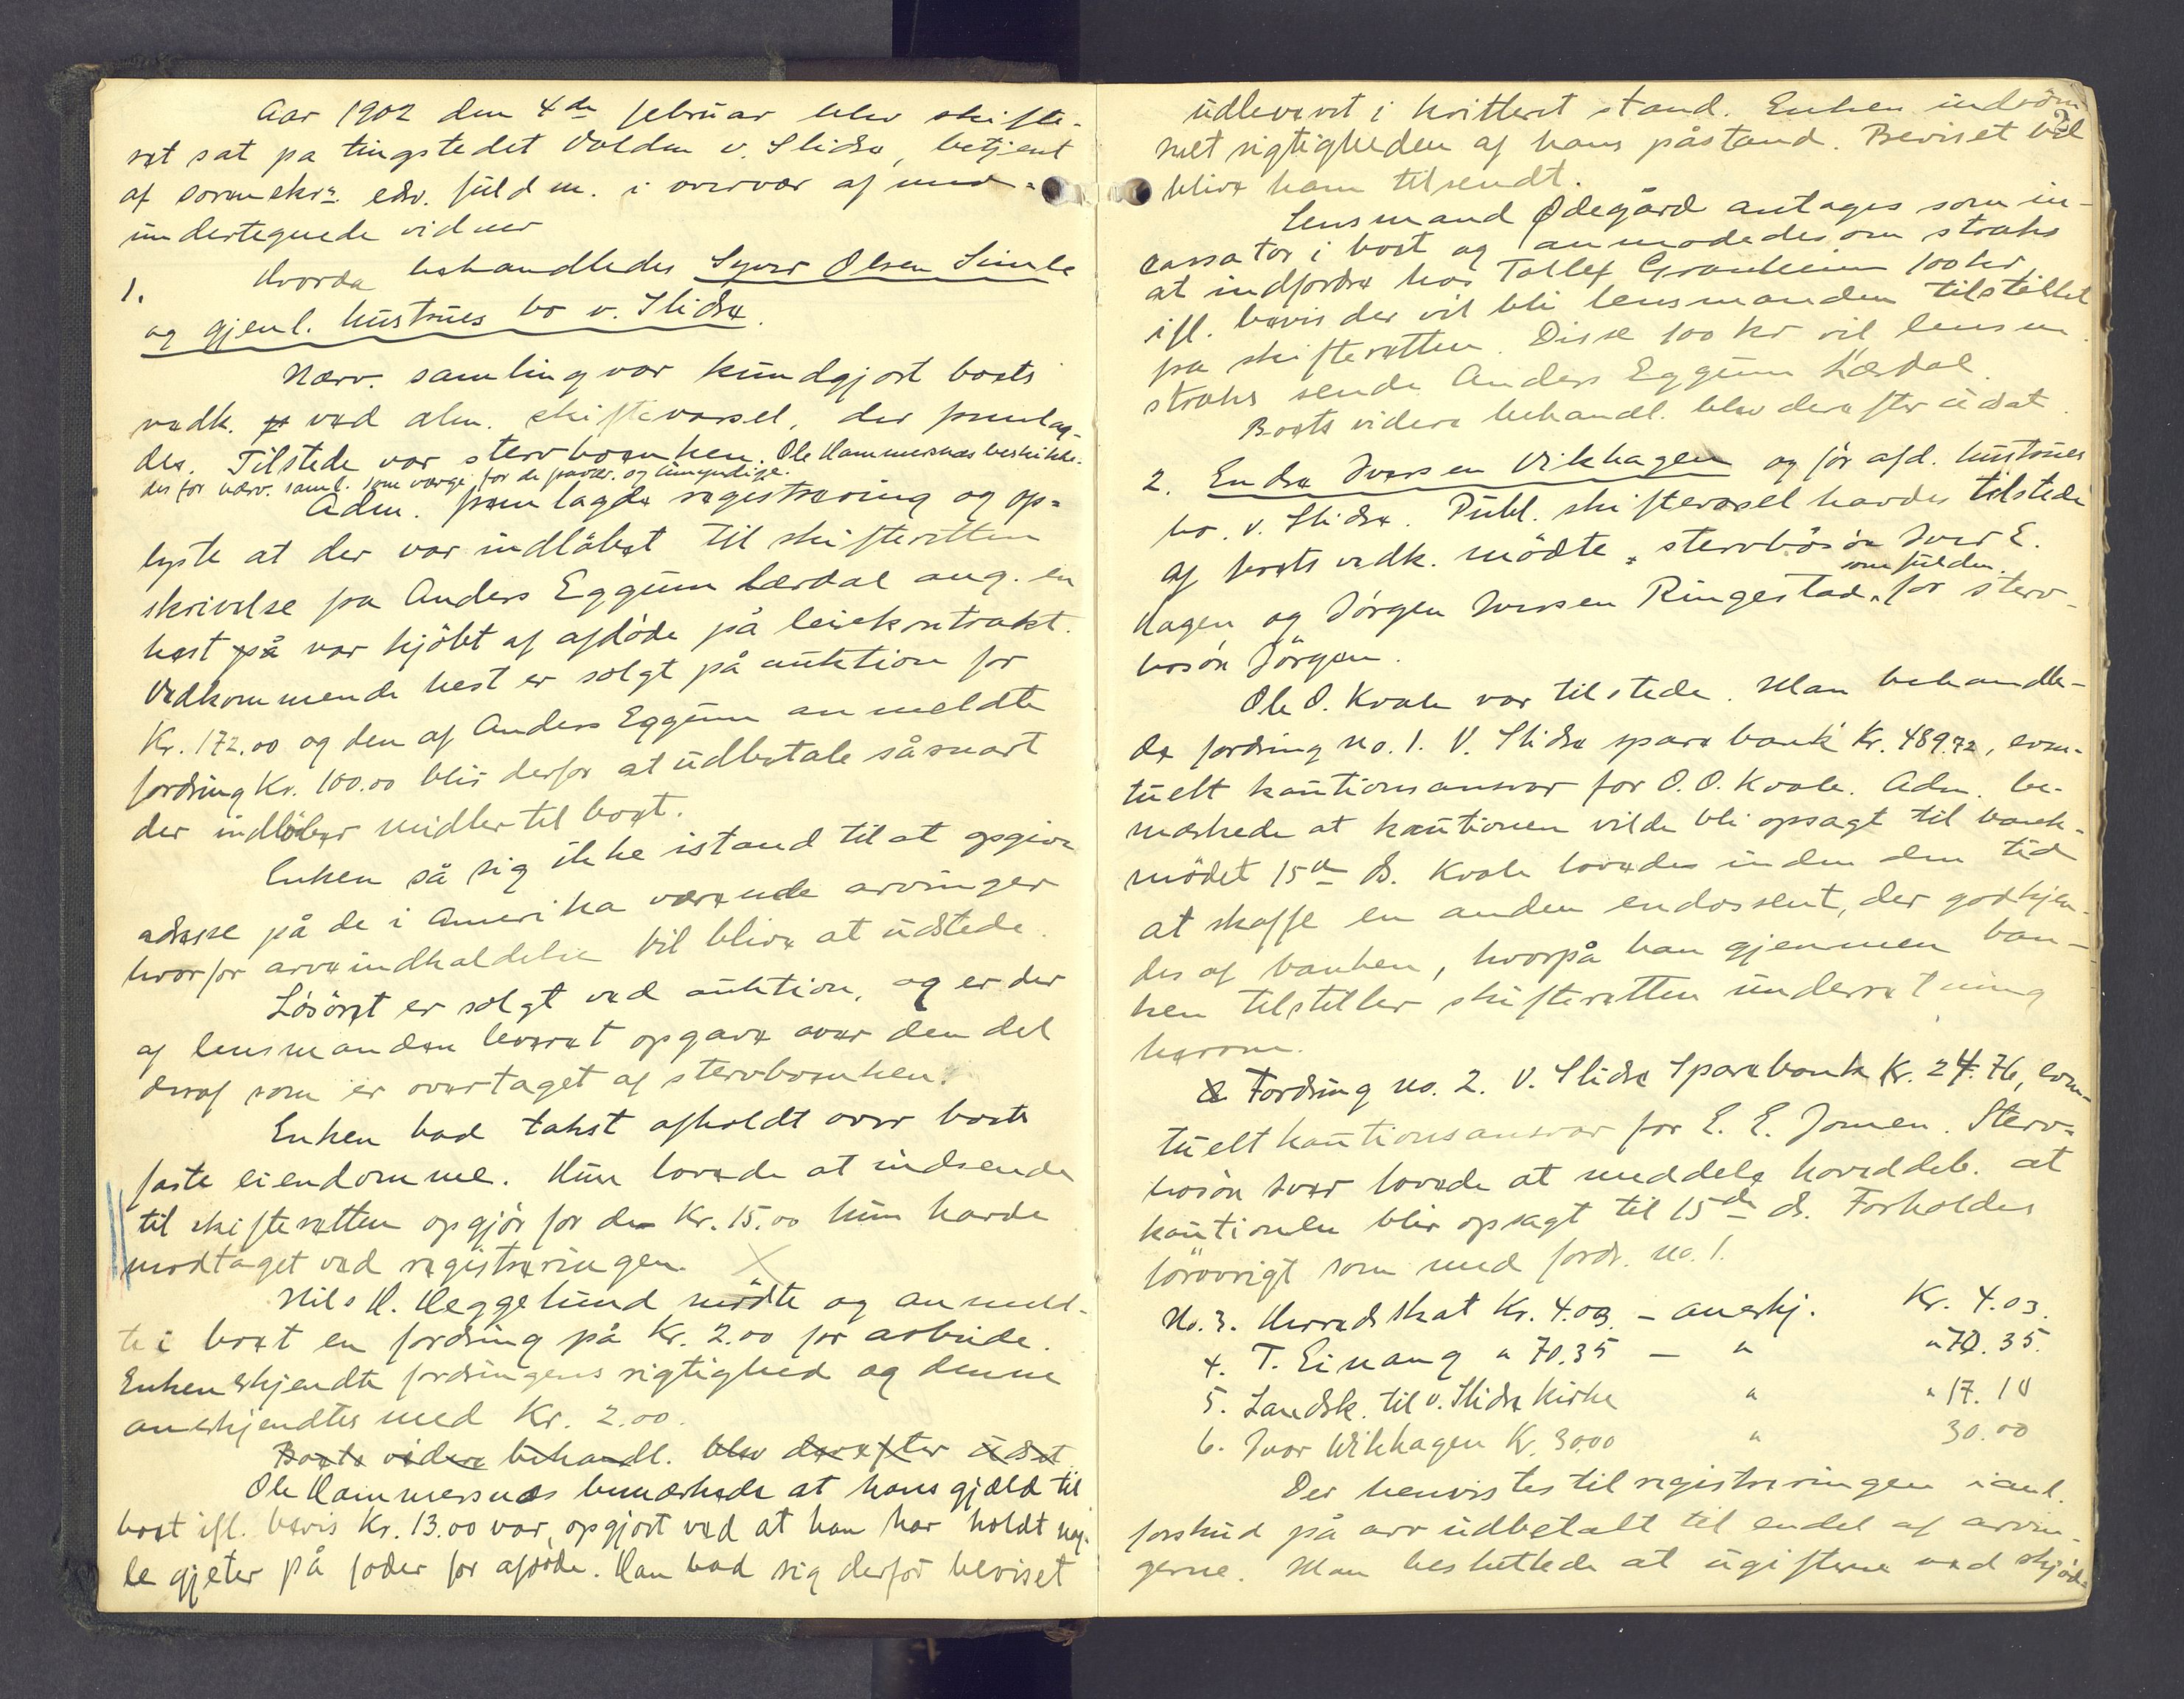 Aar 1902 den 4de februar blev skifte-
ret sat pa tingstedet Volden v. Slidre, betjent
af sorenskr.s edsv. fuldm. i overvær af med-
undertegnede vidner
1. Hvorda behandledes Syver Olsen Simle
og gjenl. hustrues bo v. Slidre.
Nærv. samling var kundgjort boets
vedk. ved alm. skiftevarsel, der fremlag-
des. Tilstede var stervboenken. Ole Hammersnes beskikke-
des for nærv. saml. som værge for de fravær. og umyndige.
Adm. fremlagde registrering og op-
lyste at der var indløbet til skifteretten
skrivelse fra Anders Eggum Lærdal ang. en
hest på var kjöbt af afdöde på leiekontrakt.
Vedkommende hest er solgt på auktion for
Kr. 172.00 og den af Anders Eggum anmeldte
fordring Kr. 100.00 blir derfor at udbetale såsnart
der indlöber midler til boet.
Enken så sig ikke istand til at opgive
adresse på de i Amerika værende arvinger
hvorfor arveindkaldelse vil blive at udstede.
Lösöret er solgt ved auktion, og er der
af lensmanden leveret opgave over den del
deraf som er overtaget af stervboenken.
Enken bad takst afholdt over boets
faste eiendomme. Hun lovede at indsende
til skifteretten opgjör for de Kr. 15.00 hun havde
modtaget ved registreringen.
Nils H. Heggelund mödte og anmeld-
te i boet en fordring på Kr. 2.00 for arbeide.
Enken erkjendte fordringens rigtighed og denne
anerkjendtes med Kr. 2.00.
Boets videre behandl. blev derefter udsat
Ole Hammersnes bemærkede at hans gjæld til
boet ifl. bevis Kr. 13.00 var opgjort ved at han har holdt nog-
le gjeter på foder for afdöde. Han bad sig derfor beviset
2
udleveret i kvittert stand. Enken indröm-
met rigtigheden af hans påstand. Beviset vil
blive ham tilsendt.
Lensmand Ødegård antages som in-
cassator i boet og anmodedes om straks
at indfordre hos Tollef Granheim 100 kr
ifl. bevis der vil bli lensmanden tilstillet
fra skifteretten. Disse 100 kr vil lensm.
straks sende Anders Eggum Lærdal.
Boets videre behandl. blev derefter udsat.
2. Endre Iversen Vikhagen og för afd. hustrues
bo. v. Slidre. Publ. skiftevarsel havdes tilstede
af boets vedk. mödte stervbosön Iver E.
som fuldm.
Hagen og Jörgen Iversen Ringestad for sterv-
bosön Jörgen.
Ole O. Kvale var tilstede. Man behandle-
de fordring no. 1. V. Slidre sparebank Kr. 489.72, even-
tuelt kautionsansvar for O. O. Kvale. Adm. be-
mærkede at kautionen vilde bli opsagt til bank-
mödet 15de ds. Kvale lovedes inden den tid
at skaffe en anden endossent, der godkjen-
des af banken, hvorpå han gjennem ban-
ken tilstiller skifteretten underretning
herom.
Fordring no. 2. V. Slidre Sparebank Kr. 24.76, even-
tuelt kautionsansvar for E. E. Jomen. Sterv-
bosön Iver lovede at meddele hoveddeb. at
kautionen blir opsagt til 15de ds. Forholdes
forövrigt som med fordr. no. 1.
No. 3. Herredskat Kr. 4.03 – anerkj. Kr. 4.03.
4. T. Einang " 70.35 – " " 70.35.
5. Landsk. til v. Slidre kirke " " 17.10
6. Iver Wikhagen Kr. 30.00 " 30.00
Der henvistes til registreringen i anl.
forskud på arv udbetalt til endel af arvin-
gerne. Man besluttede at ugifterne ved skjöd-